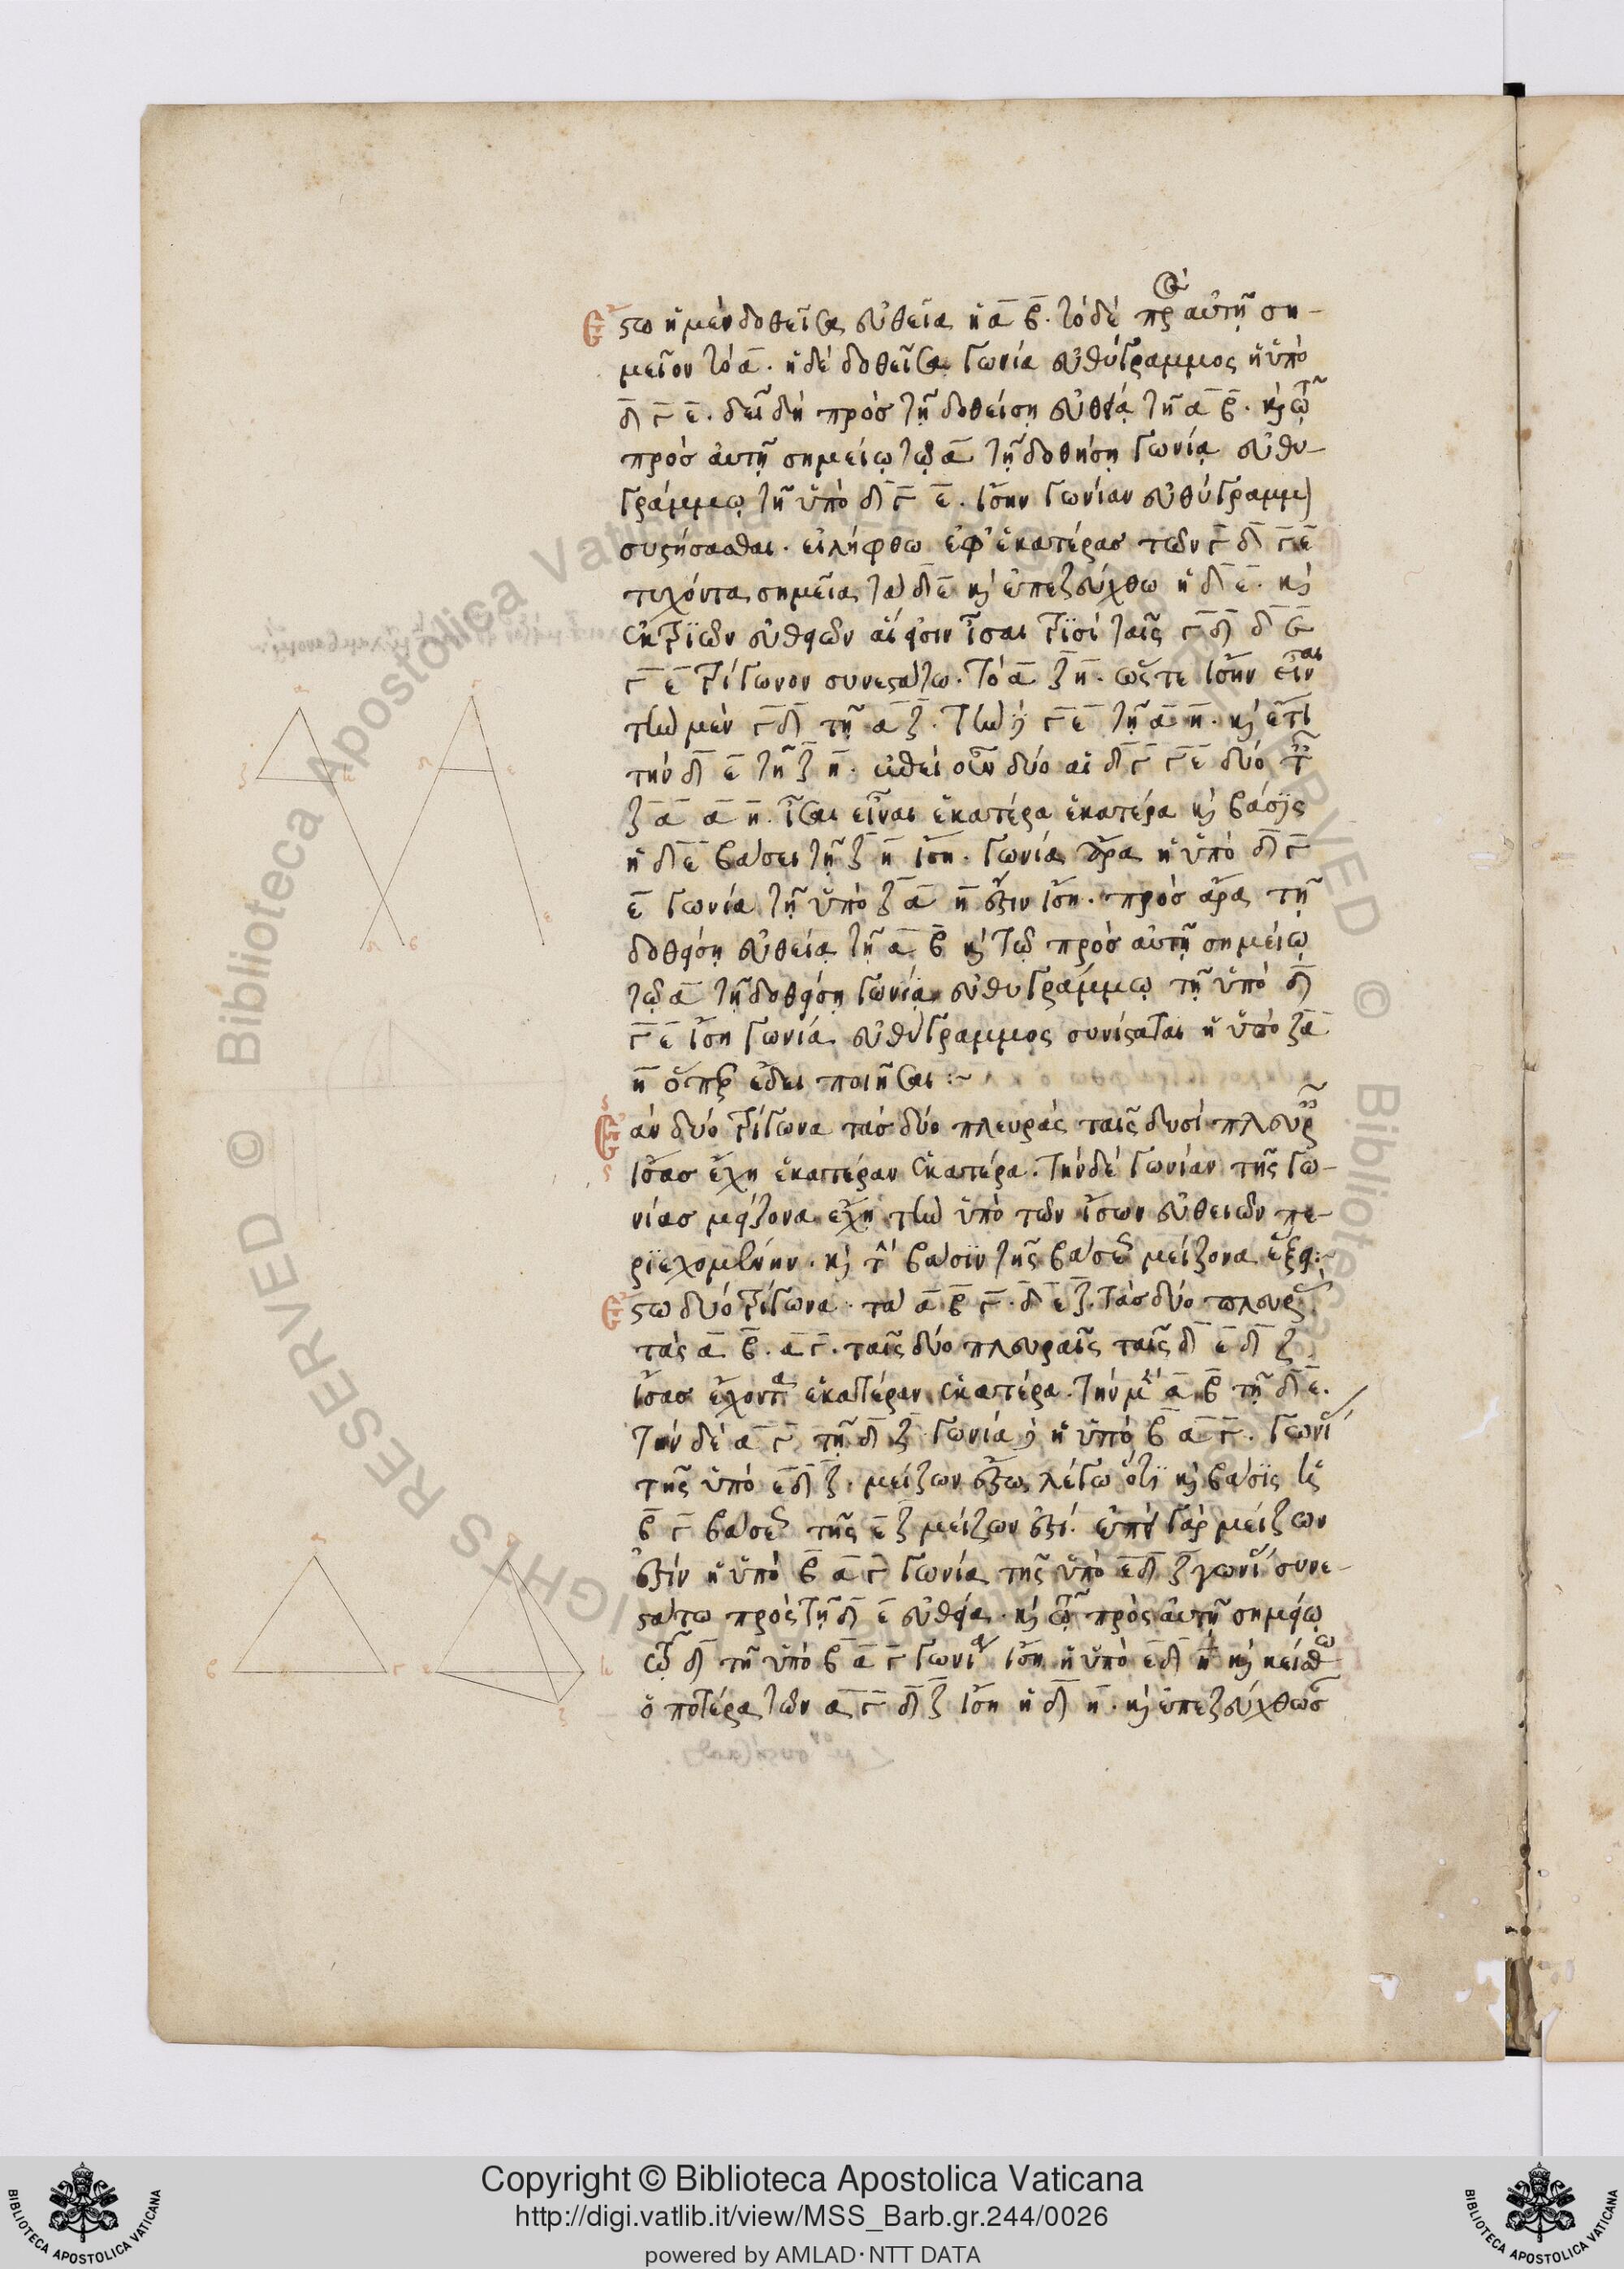 Ἔστω ἡ μὲν δοθεῖσα εὐθεῖα ἡ α β. τὸ δὲ πρὸς αὐτῇ ση-
μεῖον τὸ α. ἡ δὲ δοθεῖσα γωνία εὐθύγραμμος ἡ ὑπὸ
δ γ ε. δεῖ δὴ πρὸς τῇ δοθείσῃ εὐθείᾳ τῇ α β. καὶ τῷ
πρὸς αὐτῇ σημείῳ τῷ α τῇ δοθήσῃ γωνίᾳ εὐθυ-
γράμμῳ τῇ ὑπὸ δ γ ε. ἴσην γωνίαν εὐθύγραμμον
συστήσασθαι. εἰλήφθω ἐφ' ἑκατέρας τῶν γ δ γ ε
τυχόντα σημεῖα τὰ δ ε καὶ ἐπεζεύχθω ἡ δ ε. καὶ
ἐκ τριῶν εὐθειῶν αἵ εἰσιν ἴσαι τρισὶ ταῖς γ δ δ ε
γ ε τρίγωνον συνεστάτω. τὸ α ζ η. ὥστε ἴσην εἶναι
τὴν μὲν γ δ τῇ α ζ. τὴν δὲ γ ε τῇ α η. καὶ ἔτι
τὴν δ ε τῇ ζ η. ἐπεὶ οὖν δύο αἱ δ γ γ ε δύο ταῖς
ζ α α η. ἴσαι εἶναι ἑκατέρα ἑκατέρα καὶ βάσις
ἡ δ ε βάσει τῇ ζ η ἴση. γωνία ἄρα ἡ ὑπὸ δ γ
ε γωνία τῇ ὑπὸ ζ α η ἐστιν ἴση. πρὸς ἄρα τῇ
δοθείσῃ εὐθείᾳ τῇ α β καὶ τῷ πρὸς αὐτῇ σημείῳ
τῷ α τῇ δοθείσῃ γωνίᾳ εὐθυγράμμῳ τῇ ὑπὸ δ
γ ε ἴση γωνία εὐθύγραμμος συνίσταται ἡ ὑπὸ ζ α
η ὅπερ ἔδει ποιῆσαι :~
Ἐὰν δύο τρίγωνα τὰς δύο πλευρὰς ταῖς δυσὶ πλευραῖς
ἴσας ἔχῃ ἑκατέραν ἑκατέρα. τὴν δὲ γωνίαν τῆς γω-
νίας μείζονα ἔχῃ τὴν ὑπὸ τῶν ἴσων εὐθειῶν πε-
ριεχομένην. καὶ τὴν βάσιν τῆς βάσεως μείζονα ἕξει :~
Ἔστω δύο τρίγωνα. τὰ α β γ. δ ε ζ. τὰς δύο πλευρὰς
τὰς α β. α γ. ταῖς δύο πλευραῖς ταῖς δ ε δ ζ
ἴσας ἔχοντα ἑκατέραν ἑκατέρα. τὴν μὲν α β τῇ δ ε.
τὴν δὲ α γ τῇ δ ζ γωνία δὲ ἡ ὑπὸ β α γ. γωνίας
τῆς ὑπὸ ε δ ζ. μείζων ἔστω λέγω ὅτι καὶ βάσις
β γ βάσεως τῆς ε ζ μείζων ἐστί. ἐπεὶ γὰρ μείζων
ἐστὶν ἡ ὑπὸ β α γ γωνία τῆς ὑπὸ ε δ ζ γωνίας συνε-
στάτω πρὸς τῇ δ ε εὐθείᾳ. καὶ τῷ πρὸς αὐτῇ σημείῳ
τῷ δ τῇ ὑπὸ β α γ γωνίᾳ ἴση ἡ ὑπὸ ε δ η καὶ κείσθω
ὁποτέρα τῶν α γ δ ζ ἴση ἡ δ η. καὶ ἐπεζεύχθωσ
Copyright © Biblioteca Apostolica Vaticana
http://digi.vatlib.it/view/MSS_Barb.gr.244/0026
powered by AMLAD·NTT DATA